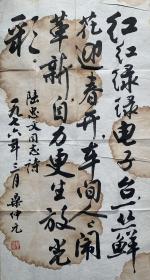 红红绿绿电子台色鲜
花迎春开车间人人闹
革新自力更生放光
彩
陆忠文同志诗
一九七六年三月 梁仲元